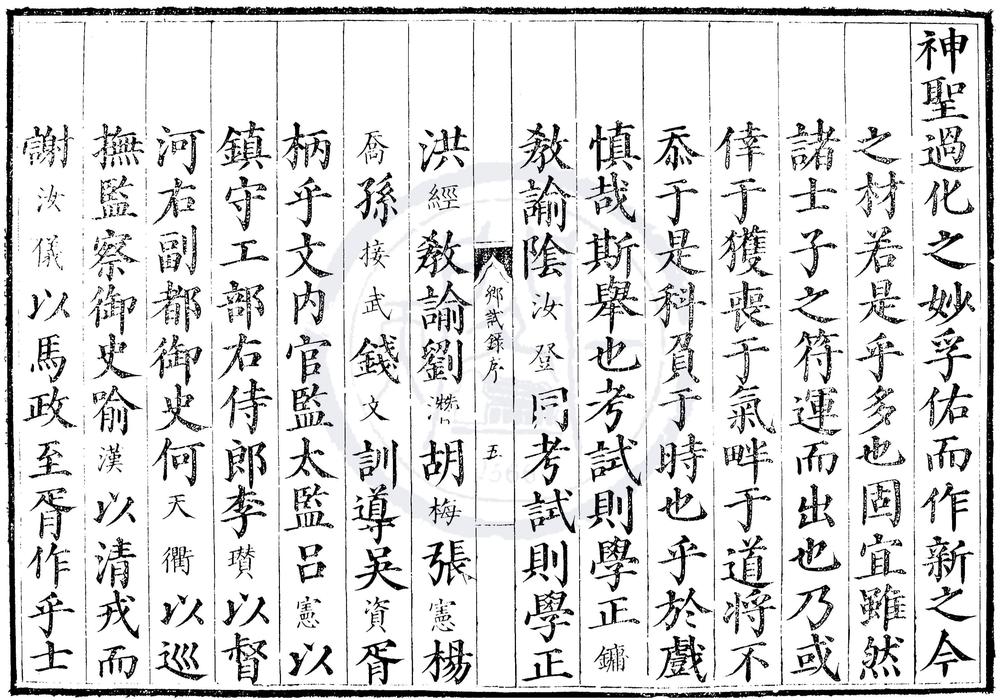 神聖過化之妙孚佑而作新之今
之材若是乎多也固宜雖然
諸士子之符運而出也乃或
倖于獲喪于氣畔于道將不
忝于是科負于時也乎於戲
慎哉斯舉也考試則學正鏞
教諭陰汝登同考試則學正
鄉試錄序 五
洪經教諭劉胡梅張憲楊
喬孫接武錢文訓導吳資胥
柄乎文内官監太監呂憲以
鎮守工部右侍郎李瓚以督
河右副都御史何天衢以巡
撫監察御史喻漢以清戎而
謝汝儀以馬政至胥作乎士